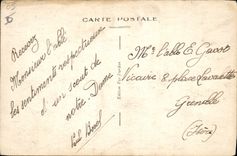 CARTE POSTALE
Recevez
Monsieur l'abbé
les sentiments respectueux
d'un scout de
notre Dame
Mr l'abbé E Gavot
Vicaire 8 place Lavalette
Grenoble
(Isère)